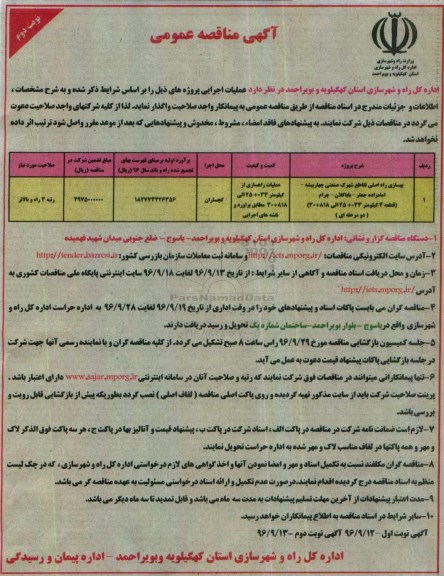 نوبت دوم
آگهی مناقصه عمومی
وزارت راه و شهرسازی
اداره کل راه و شهرسازی
استان کهگیلویه و بویراحمد
اداره کل راه و شهرسازی استان کهگیلویه و بویراحمد در نظر دارد عملیات اجرایی پروژه های ذیل را بر اساس شرایط ذکر شده و به شرح مشخصات ،
اطلاعات و جزئیات مندرج در اسناد مناقصه از طریق مناقصه عمومی به پیمانکار واجد صلاحیت واگذار نماید. لذا از کلیه شرکتهای واجد صلاحیت دعوت
می گردد در مناقصات ذیل شرکت نمایند. به پیشنهادهای فاقد امضاء ، مشروط ، مخدوش و پیشنهادهایی که بعد از موعد مقرر واصل شود ترتیب اثر داده
نخواهد شد.
ردیف شرح پروژه کمیت و کیفیت محل اجرا برآورد اولیه بر مبنای فهرست بهای تجمیع شده راه و باند سال ۹۶ (ریال) مبلغ تضمین شرکت در مناقصه (ریال) صلاحیت مورد نیاز
۱ بهسازی راه اصلی تقاطع شهرک صنعتی چهاربیشه - امامزاده جعفر - باباکلان - چرام (قطعه ۲ کیلومتر ۰۳۳+۲۵ الی ۸۱۸+۳۰) (دو مرحله ای) عملیات راهسازی از کیلومتر ۰۳۳+۲۵ الی ۸۱۸+۳۰ مطابق برآورد و نقشه های اجرایی گچساران ۱۸۲۷۷۴۴۲۶۳۵۶ ۴۹۷۵۰۰۰۰۰۰ رتبه ۳ راه و بالاتر
۱-دستگاه مناقصه گزار و نشانی: اداره کل راه و شهرسازی استان کهگیلویه و بویراحمد - یاسوج - ضلع جنوبی میدان شهید فهمیده
۲-آدرس سایت الکترونیکی مناقصات: http://iets.mporg.ir و سامانه ثبت معاملات سازمان بازرسی کشور: http://tender.bazresi.ir
۳-زمان و محل دریافت اسناد مناقصه و آگاهی از سایر شرایط : از تاریخ ۹۶/۹/۱۳ لغایت ۹۶/۹/۱۸ سایت اینترنتی پایگاه ملی مناقصات کشوری به
آدرس http://iets.mporg.ir/
۴-مناقصه گران می بایست پاکات اسناد و پیشنهادهای خود را در وقت اداری از تاریخ ۹۶/۹/۱۹ لغایت ۹۶/۹/۲۸ به اداره حراست اداره کل راه و
شهرسازی واقع در یاسوج - بلوار بویراحمد - ساختمان شماره یک تحویل و رسید دریافت دارند.
۵-جلسه کمیسیون بازگشایی مناقصه مورخ ۹۶/۹/۲۹ راس ساعت ۸ صبح تشکیل می گردد. از کلیه مناقصه گران و یا نماینده رسمی آنها جهت شرکت
در جلسه بازگشایی پاکات پیشنهاد قیمت دعوت به عمل می آید.
۶-تنها پیمانکارانی میتوانند در مناقصات فوق شرکت نمایند که رتبه و صلاحیت آنان در سامانه اینترنتی www.sajar.mporg.ir دارای اعتبار باشد .
پرینت صلاحیت شرکت باید از سایت مذکور تهیه گردیده و روی پاکت اصلی مناقصه (لفاف اصلی) نصب گردد بطوریکه پیش از بازگشایی قابل رویت و
بررسی باشد.
۷-لازم است ضمانت نامه شرکت در مناقصه در پاکت الف ، اسناد شرکت در پاکت ب ، پیشنهاد قیمت و آنالیز بها در پاکت ج ، هر سه پاکت فوق الذکر لاک
و مهر و همه پاکتها در لفاف مناسب لاک و مهر شده به اداره حراست تحویل نمایند.
۸-مناقصه گران مکلفند نسبت به تکمیل اسناد و مهر و امضا نمودن آنها و اخذ گواهی های لازم درخواستی اداره کل راه و شهرسازی ، که در چک لیست
منظم به اسناد مناقصه درج گردیده اقدام نمایند. درصورت عدم تکمیل و ارائه اسناد درخواستی مسئولیت به عهده مناقصه گر می باشد.
۹-مدت اعتبار پیشنهادات از آخرین مهلت تسلیم پیشنهادات به مدت سه ماه می باشد و قابل تمدید تا سه ماه دیگر می باشد.
۱۰-سایر شرایط در اسناد مناقصه به اطلاع پیمانکاران خواهد رسید.
آگهی نوبت اول - ۹۶/۹/۱۲ آگهی نوبت دوم - ۹۶/۹/۱۳
اداره کل راه و شهرسازی استان کهگیلویه وبویراحمد - اداره پیمان و رسیدگی